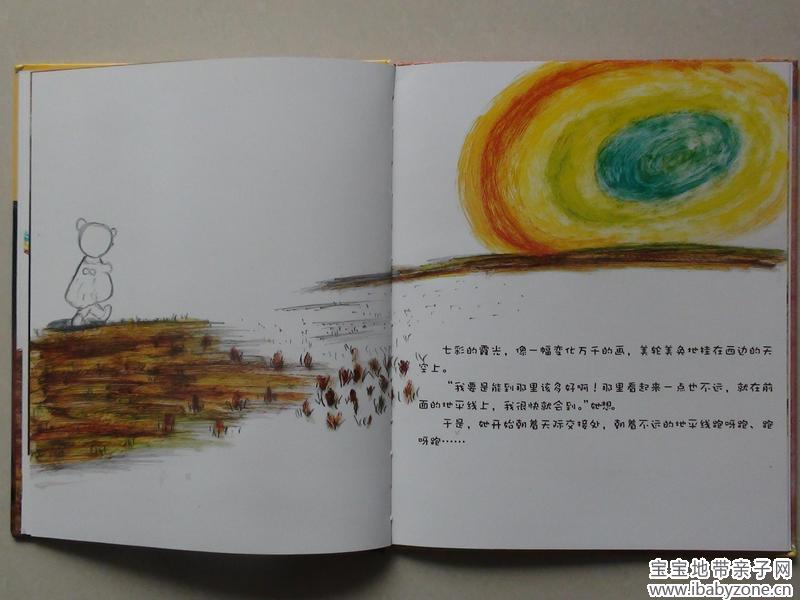 七彩的霞光，像一幅变化万千的画，美轮美奂地挂在西边的天
空上。
“我要是能到那里该多好啊！那里看起来一点也不远，就在前
面的地平线上，我很快就会到。”她想。
于是，她开始朝着天际交接处，朝着不远的地平线跑呀跑、跑
呀跑……
宝宝地带亲子网
www.ibabyzone.cn